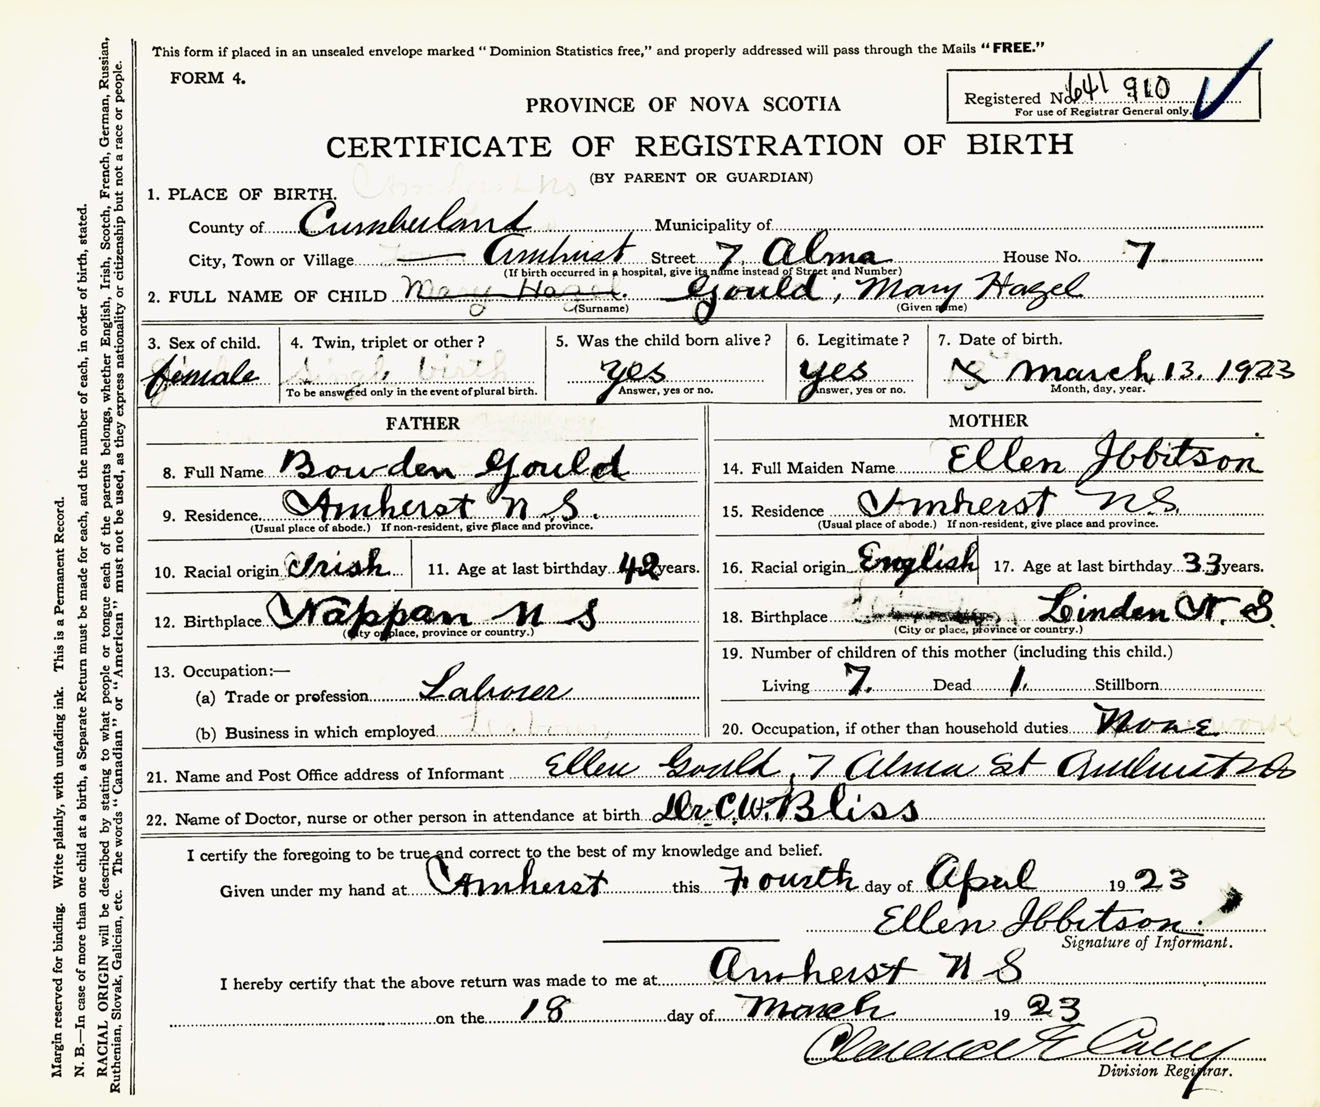 This form if placed in an unsealed envelope marked “Dominion Statistics free,” and properly addressed will pass through the Mails “FREE.”
FORM 4.
Registered No. 641 910
For use of Registrar General only.
PROVINCE OF NOVA SCOTIA
CERTIFICATE OF REGISTRATION OF BIRTH
(BY PARENT OR GUARDIAN)
Amherst NS
1. PLACE OF BIRTH.
County of Cumberland Municipality of
City, Town or Village Amhurst Street 7 Alma House No. 7
(If birth occurred in a hospital, give its name instead of Street and Number)
2. FULL NAME OF CHILD Mary Hazel. Gould, Mary Hazel
(Surname) (Given name)
3. Sex of child. 4. Twin, triplet or other? 5. Was the child born alive? 6. Legitimate? 7. Date of birth.
female Single birth yes yes March 13. 1923
To be answered only in the event of plural birth. Answer, yes or no. Answer, yes or no. Month, day, year.
FATHER MOTHER
8. Full Name Bowden Gould 14. Full Maiden Name Ellen Ibbitson
9. Residence Amherst N S. 15. Residence Amherst N S.
(Usual place of abode.) If non-resident, give place and province. (Usual place of abode.) If non-resident, give place and province.
10. Racial origin Irish 11. Age at last birthday 42 years. 16. Racial origin English 17. Age at last birthday 33 years.
12. Birthplace Nappan N S 18. Birthplace Linden N. S.
(City or place, province or country.) (City or place, province or country.)
13. Occupation:—
(a) Trade or profession Laborer
(b) Business in which employed
19. Number of children of this mother (including this child.)
Living 7. Dead 1. Stillborn
20. Occupation, if other than household duties None
21. Name and Post Office address of Informant Ellen Gould, 7 Alma St Amhurst NS
22. Name of Doctor, nurse or other person in attendance at birth Dr. C.W. Bliss
I certify the foregoing to be true and correct to the best of my knowledge and belief.
Given under my hand at Amherst this Fourth day of April 19 23
Ellen Ibbitson.
Signature of Informant.
I hereby certify that the above return was made to me at Amherst N S
on the 18 day of March 19 23
Clarence E
Division Registrar.
Margin reserved for binding. Write plainly, with unfading ink. This is a Permanent Record.
N. B.—In case of more than one child at a birth, a Separate Return must be made for each, and the number of each, in order of birth, stated.
RACIAL ORIGIN will be described by stating to what people or tongue each of the parents belongs, whether English, Irish, Scotch, French, German, Russian,
Ruthenian, Slovak, Galician, etc. The words “Canadian” or “American” must not be used, as they express nationality or citizenship but not a race or people.